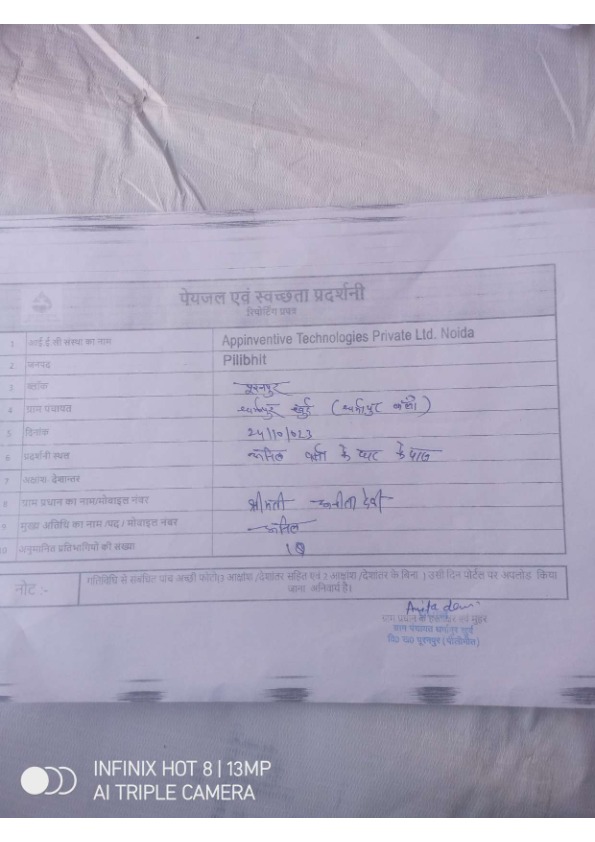 पेयजल एवं स्वच्छता प्रदर्शनी
रिपोर्टिंग प्रपत्र
1 आई ई सी संस्था का नाम Appinventive Technologies Private Ltd. Noida
2 जनपद Pilibhit
3 ब्लॉक पूरनपुर
4 ग्राम पंचायत धर्मापुर खुर्द (धर्मापुर कलाँ)
5 दिनांक 24/10/023
6 प्रदर्शनी स्थल के घर के पास
7 अक्षांश- देशान्तर
8 ग्राम प्रधान का नाम/मोबाइल नंबर श्रीमती अनीता देवी
9 मुख्य अतिथि का नाम /पद / मोबाइल नंबर
10 अनुमानित प्रतिभागियों की संख्या
नोट :- गतिविधि से संबंधित पांच अच्छी फोटो(3 आक्षांश /देशांतर सहित एवं 2 आक्षांश /देशांतर के बिना ) उसी दिन पोर्टल पर अपलोड किया
जाना अनिवार्य है।
Anita devi
ग्राम प्रधान के हस्ताक्षर एवं मुहर
ग्राम पंचायत धर्मापुर खुर्द
वि० ख० पूरनपुर (पीलीभीत)
INFINIX HOT 8 | 13MP
AI TRIPLE CAMERA